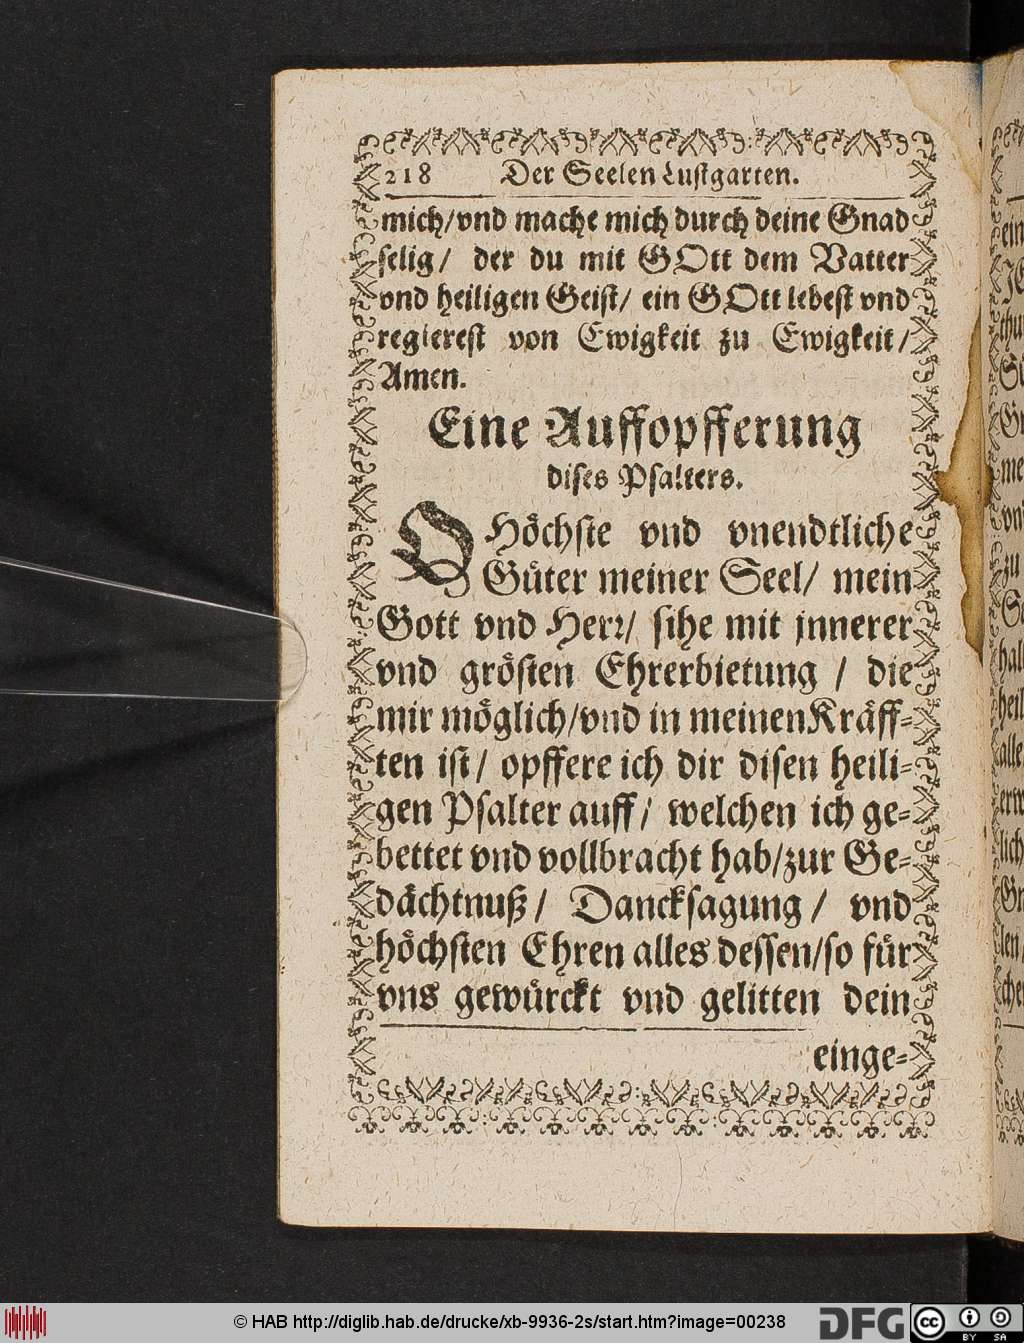 218 Der Seelen Lustgarten.
mich/vnd mache mich durch deine Gnad
selig/ der du mit GOtt dem Vatter
vnd heiligen Geist/ ein GOtt lebest vnd
regierest von Ewigkeit zu Ewigkeit/
Amen.
Eine Auffopfferung
dises Psalters.
O Höchste vnd vnendtliche
Güter meiner Seel/ mein
Gott vnd Herr/ sihe mit jnnerer
vnd grösten Ehrerbietung / die
mir möglich/vnd in meinen Kräff-
ten ist/ opffere ich dir disen heili-
gen Psalter auff/ welchen ich ge-
bettet vnd vollbracht hab/zur Ge-
dächtnuß/ Dancksagung/ vnd
höchsten Ehren alles dessen/so für
vns gewürckt vnd gelitten dein
einge-
© HAB http://diglib.hab.de/drucke/xb-9936-2s/start.htm?image=00238
DFG
cc
BY SA